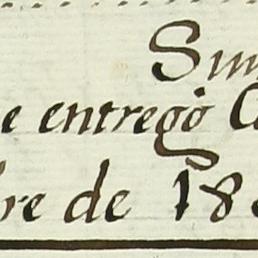 Sum
e entregó C
bre de 18